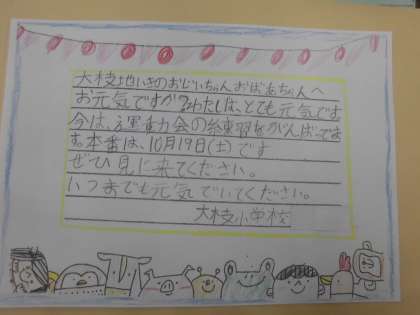 大枝地いきのおじいちゃんおばあちゃんへ
お元気ですか?わたしは、とても元気です
今は、運動会の練習をがんばってま
す。本番は、10月19日(土)です
ぜひ見に来てください。
いつまでも元気でいてください。
大枝小学校